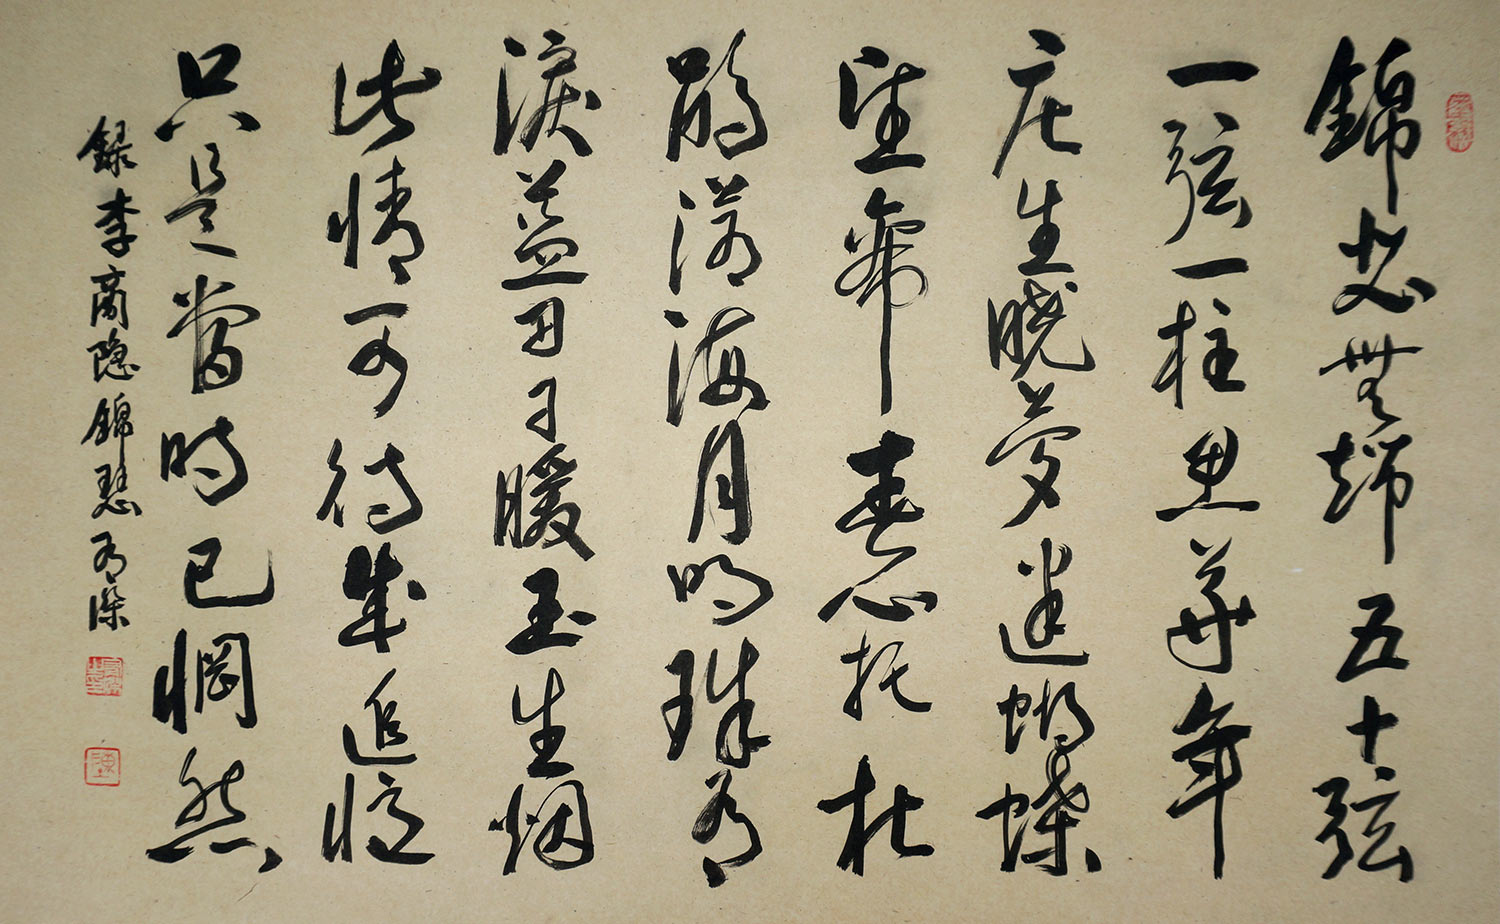 錦瑟無端五十弦
一弦一柱思華年
庄生晓夢迷蝴蝶
望帝春心托杜
鵑滄海月明珠有
淚蓝田日暖玉生烟
此情可待成追憶
只是當時已惘然
録李商隐錦瑟有